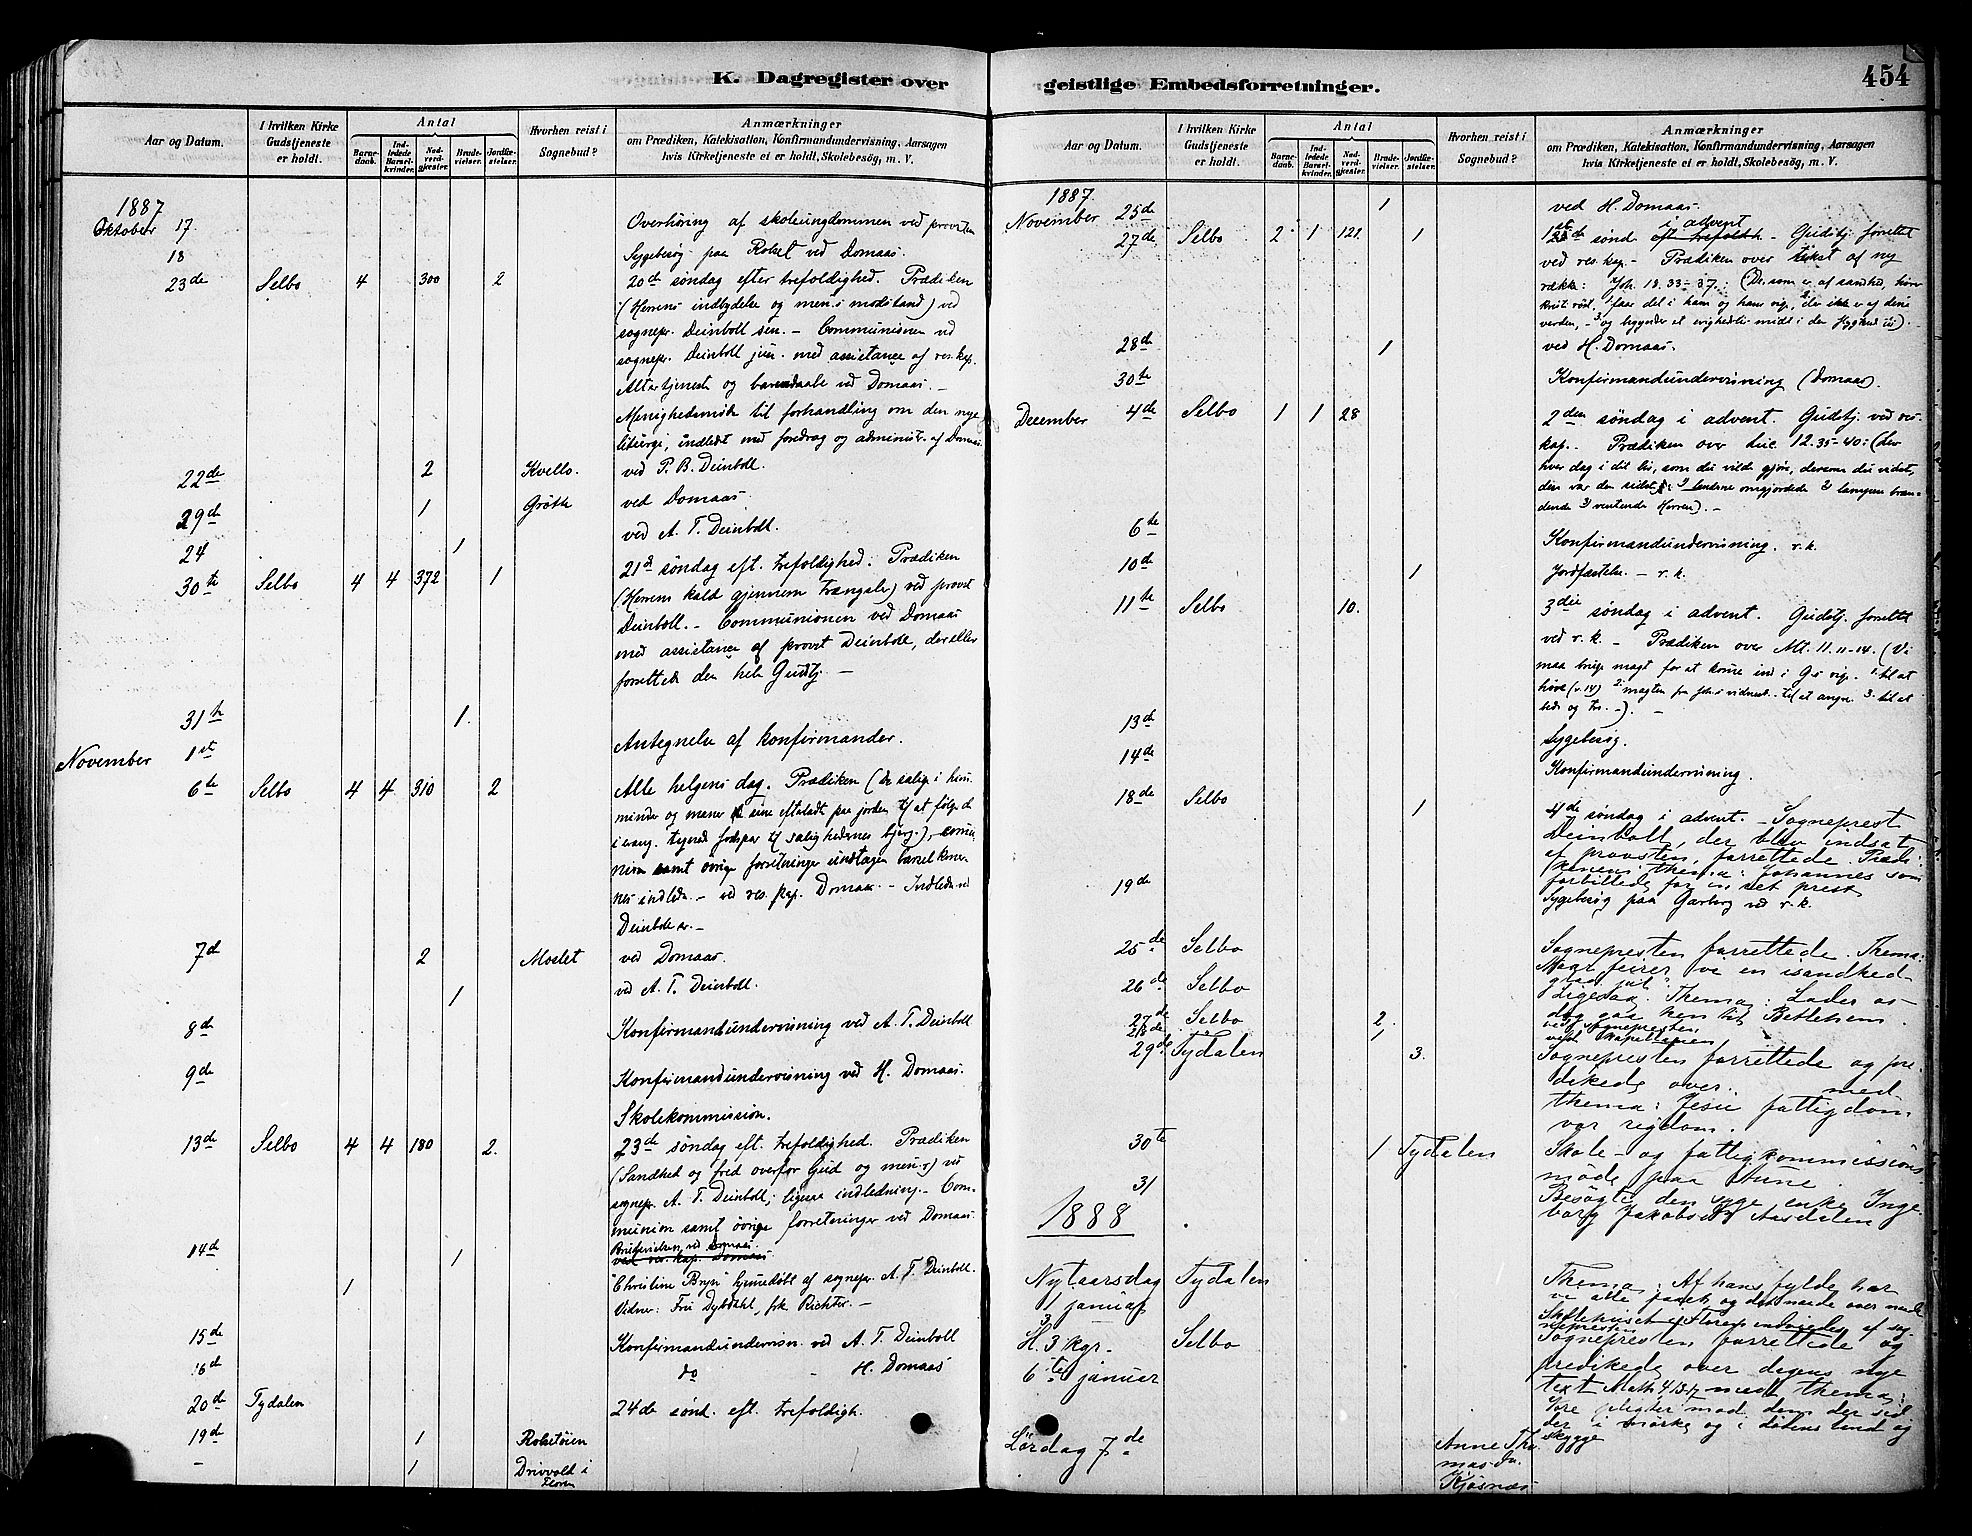 K. Dagregister over
geistlige Embedsforretninger.
454
Aar og Datum.
I hvilken Kirke Gudstjeneste er holdt.
Antal
Barnedaab.
Indledede Barselkvinder.
Nadverdgjester.
Brudevielser.
Jordfæstelser.
Hvorhen reist i Sognebud?
Anmærkninger
om Prædiken, Katekisation, Konfirmandundervisning, Aarsagen
hvis Kirketjeneste ei er holdt, Skolebesög, m. V.
1887
Oktober 17 Overhøring af skoleungdommen ved provsten
18 Sygebesög paa Rolset ved Domaas.
23de Selbo 4 300 2 20de søndag efter trefoldighed. Prædiken
(Herrens indbydelse og men.s modstand) ved
sognepr. Deinboll sen. – Communionen ved
sognepr. Deinboll jun. med assistance af res. kap.
Altertjeneste og barnedaabe ved Domaas. –
Menighedsmøde til forhandling om den nye
liturgi, indledt med foredrag og administr. af Domaas.
22de 2 Kvello. ved P. B. Deinboll.
29de 1 Grøtte ved Domaas.
24 1 ved A. T. Deinboll.
30te Selbo 4 4 372 1 21de søndag eft. trefoldighed. Prædiken
(Herrens kald gjennem trængsler) ved provst
Deinboll. – Communionen ved Domaas
med assistance af provst Deinboll, der eller
forrettede den hele Gudstj. –
31te 1.
November 1st Antegnelse af konfirmander.
6te Selbo 4 4 310 2 Alle helgens dag. Prædiken (De salige i him
minde og mener sine efterladte paa jorden til at følge d
i evang. tegnede fodspor til salighedernes bjerg.), commu
nion samt övrige forretninger undtagen barselkone
nes indledn. – ved res. kap. Domaas. – Indledn ved
Deinboll sr. –
7de 2 Moslet ved Domaas.
1 ved A. T. Deinboll.
8de Konfirmandundervisning ved A. T. Deinboll
9de Konfirmandundervisning ved H. Domaas.
Skolekommission.
13de Selbo 4 4 180 2. 23de søndag eft. trefoldighed. Prædiken
(Sandhed og fred overfor Gud og men.r) ved
sognepr. A. T. Deinboll; ligesaa indledning. – Com
munion samt övrige forretninger ved Domaas.
14de 1 Brudevielsen ved Domaas.
ved res. kap. Domaas
1 "Christine Bryn" hjemmedöbt af sognepr. A. T. Deinboll.
Vidner: Fru Dybdahl, frk Richter. –
15de Konfirmandundervisn. ved A. T. Deinboll
16de do - H. Domaas
20de Tydalen 24de sönd. eft. trefoldigh.
19de 1 Rolsetöien
– 1 Drivvold i
Floren
Aar og Datum.
I hvilken Kirke Gudstjeneste er holdt.
Antal
Barnedaab.
Indledede Barselkvinder.
Nadverdgjester.
Brudevielser.
Jordfæstelser.
Hvorhen reist i Sognebud?
Anmærkninger
om Prædiken, Katekisation, Konfirmandundervisning, Aarsagen
hvis Kirketjeneste ei er holdt, Skolebesög, m. V.
1887.
November 25de 1 ved H. Domaas.
27de Selbo 2 1 121 1 1st sönd i advent eft. trefoldh. – Gudstj. forrettet
ved res. kap. – Prædiken over tekst af ny
række: Joh. 18. 33–37.: (De, som er af sandhed, hører
krist röst, 1 faar del i ham og hans rige, 2 der ikke er af denne
verden, – 3 og
28de 1 ved H. Domaas.
30te Konfirmandundervisning (Domaas).
December 4de Selbo 1 1 28 2den søndag i advent. Gudstj. ved res.
kap. Prædiken over Luc. 12. 35–40: (Lev
hver dag i dit liv, som du vilde gjøre, dersom du vidste,
den var den sidste: 1) lenderne omgjordede 2) lampen bræn
dende 3) ventende Herren). –
6te Konfirmandundervisning. r. k.
10de 1 Jordfæstelse. – r. k.
11te Selbo 10. 3die søndag i advent. Gudstj. forrettet
ved r. k. – Prædiken over Mt. 11. 11–14. (Vi
maa bruge magt for at komme ind i G.s rige. 1. til at
høre (v. 14) 2: magten fra Joh.s vidnesb. til at angre 3. til at
bede og tro. –). –
13de Sygebesög.
14de Konfirmandundervisning.
18de Selbo 1 4de søndag i advent. – Sogneprest
Deinboll, der blev indsat
af provsten, forrettede. Prædi
kenens thema: Johannes som
forbillede for en ret prest
19de Sygebesög paa Garberg ved r. k.
25de Selbo Sognepresten forrettede. Thema:
Naar feirer vi en isandhed
glad jul?
26de Selbo Ligedag. Thema: Lader os
dog gaa hen til Bethlehem.
27de Selbo 2. ved Sognepresten
28de 1 ved kapellanen
29de Tydalen 3. Sognepresten forrettede og præ
dikede over. med
thema: Jesu fattigdom
vor rigdom.
30te 1 Tydalen Skole- og fattigkommissions
møde paa Aune.
31 Besøgte den syge enke Inge
borg Jakobsdtr Aasdalen
1888
Nytaarsdag Tydalen Thema: Af hans fylde har
1 januar vi alle faaet og det naade over naade
H. 3 kgr. Selbo Sognepresten forrettede og
6te januar predikede over dagens nye
text Math 4 13-17 med thema:
Vore pligter mod dem der sid
der i mørke og i dødens land og
skygge
Lørdag 7de Anne Tho
masdr.
Kjøsnæs